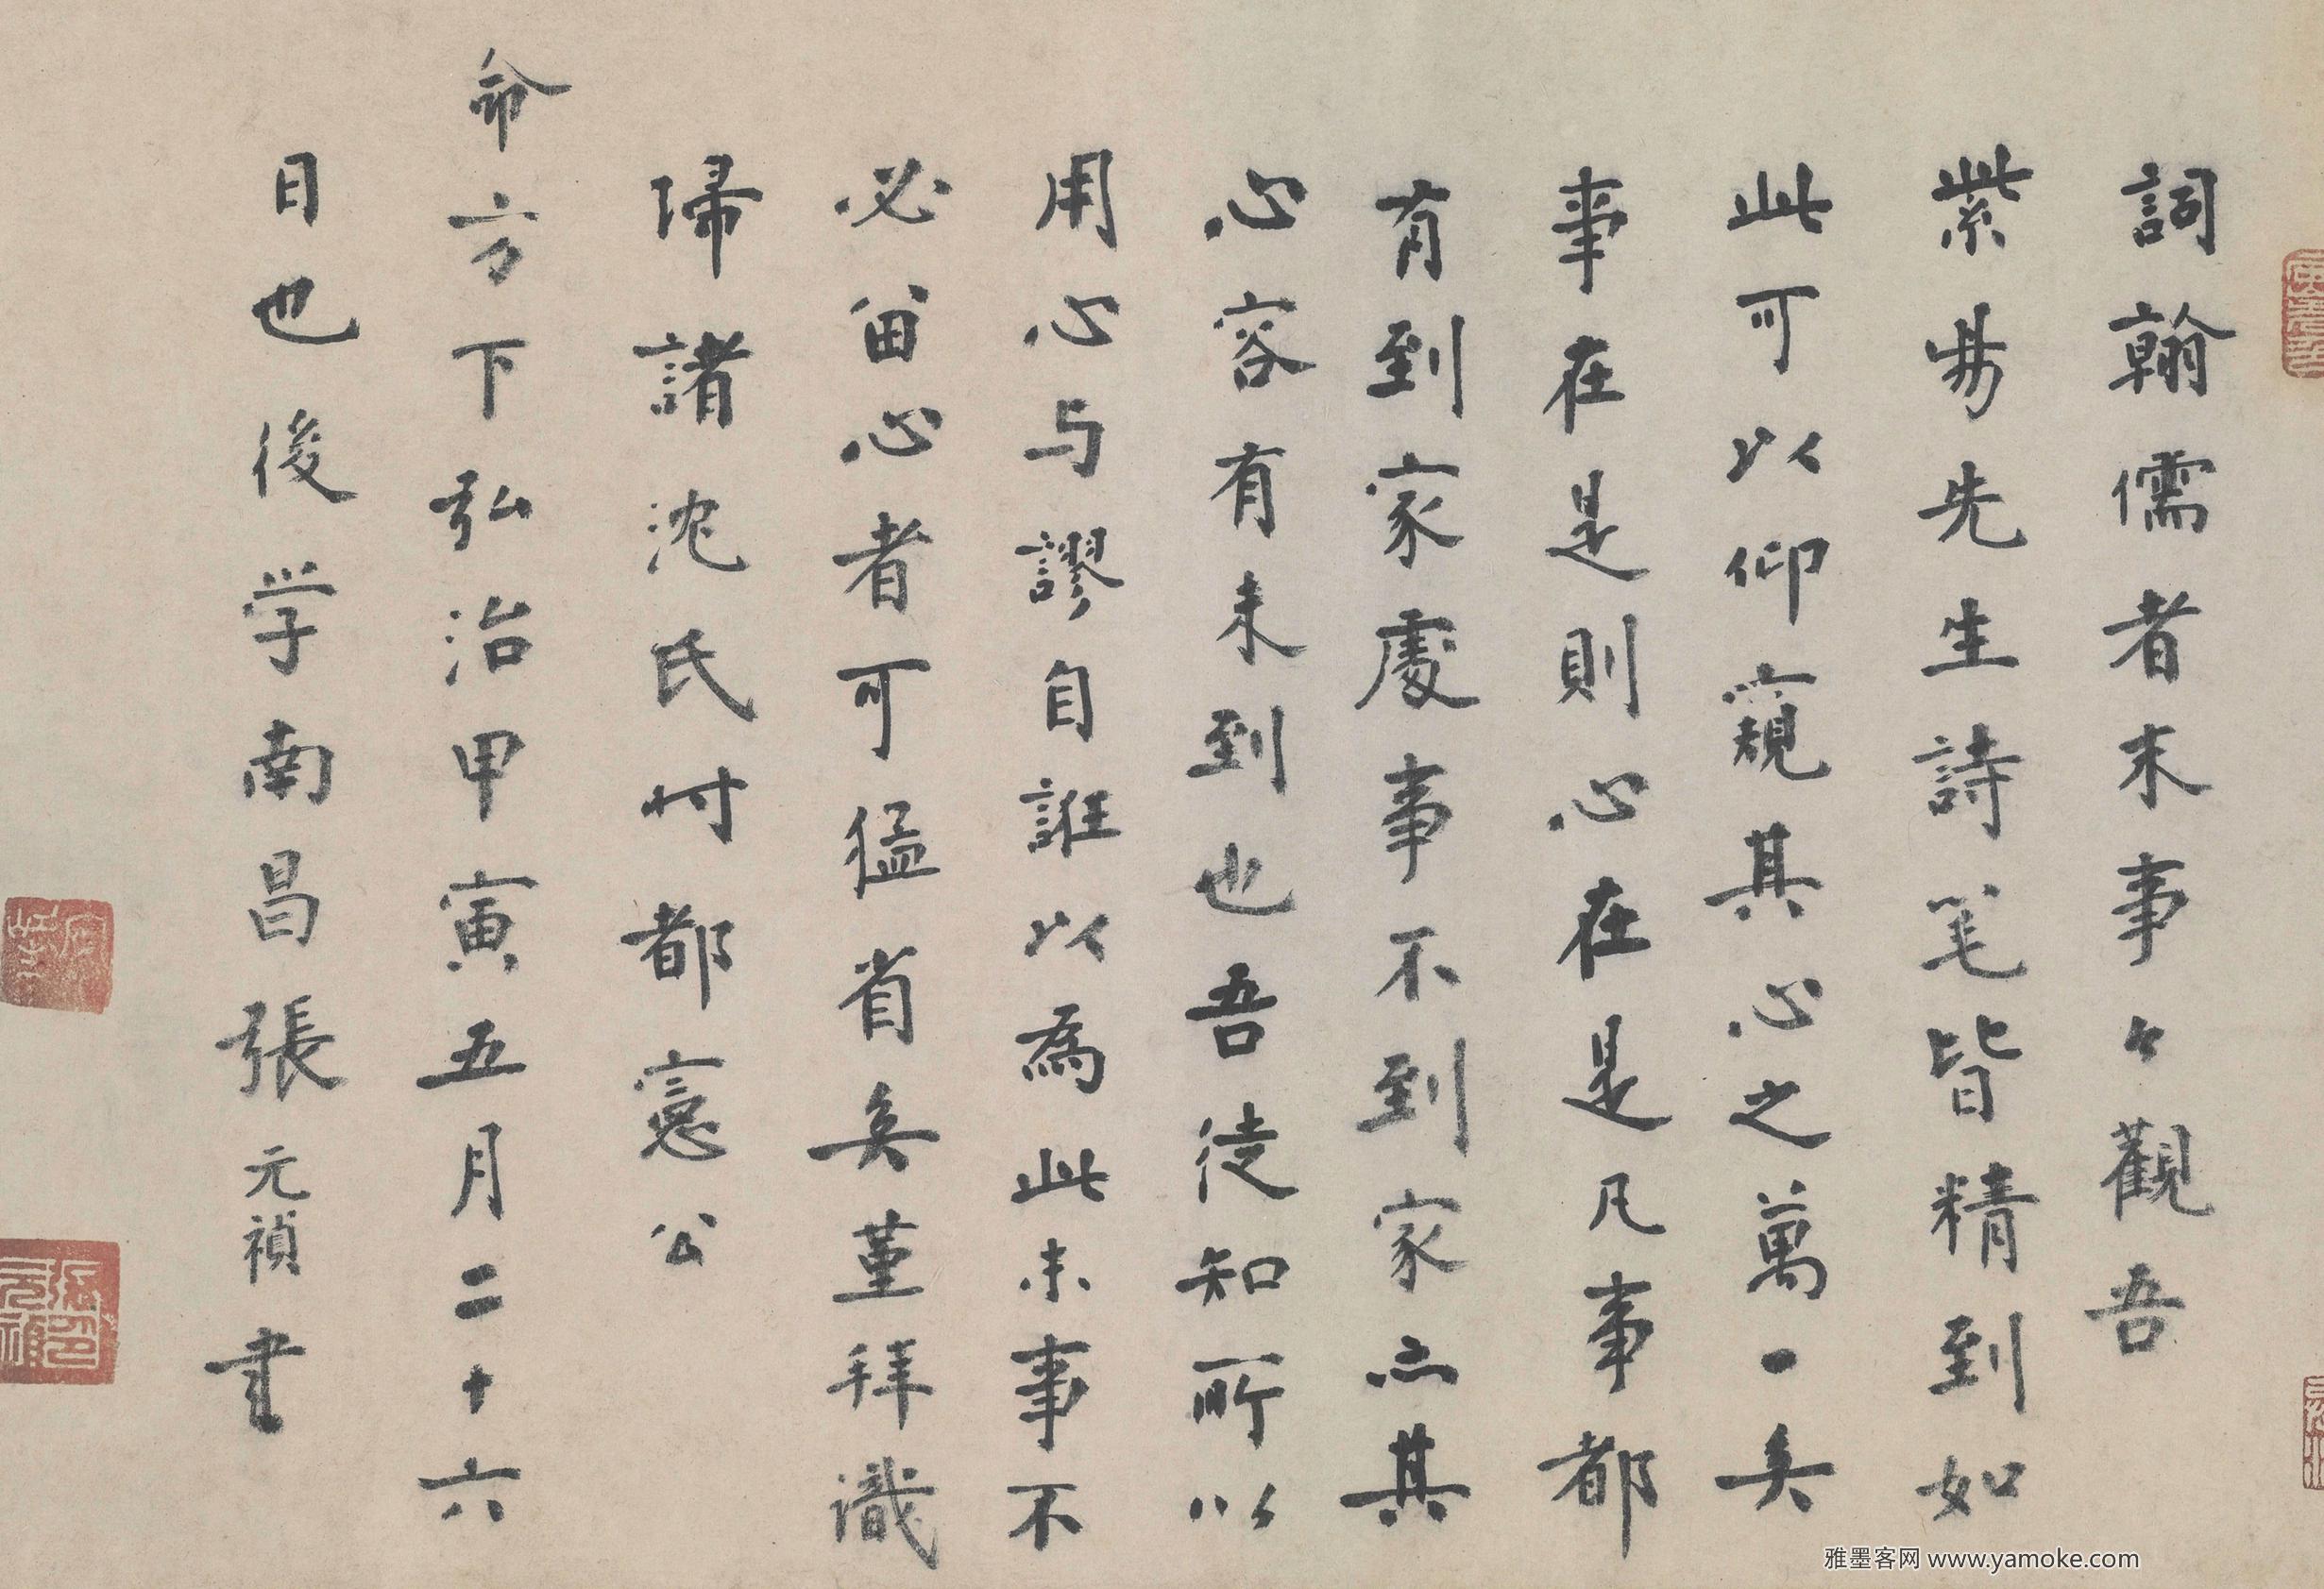 詞翰儒者末事々觀吾
紫昜先生詩笔皆精到如
此可以仰窺其心之萬一矣
事在是則心在是凡事都
有到家處事不到家亦其
心容有未到也吾徒知所以
用心与謬自誑以為此末事不
必畱心者可猛省矣堇拜識
歸諸沈氏时都憲公
命方下弘治甲寅五月二十六
日也後学南昌張元禎書
雅墨客网 www.yamoke.com